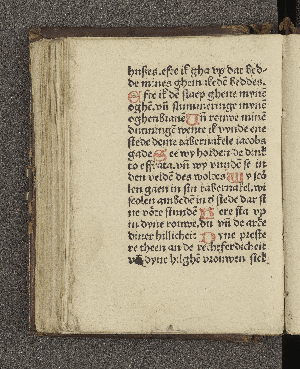 huses. efte ik gha vp dat bed-
de mines ghein ik edē beddes.
Efte ik dē slaep gheue mynē
oghē. vñ slummeringe mynē
oghenbranē Vñ rouwe minē
dunningē wente ik vynde ene
stede deme tabernakele iacobs
gade See wy horden de dink
to effrata. vñ wy vundē se in
den veldē des woldes Wy scō
len gaen in sin tabernakel. wi
scolen anbedē in d stede dar st
ne vōte stundē Here sta vp
in dyne rouwe. du vñ de arke
diner hillicheit Dyne preste
re theen an de rechtferdicheit
vñ dyne hilghē vrouwen sick